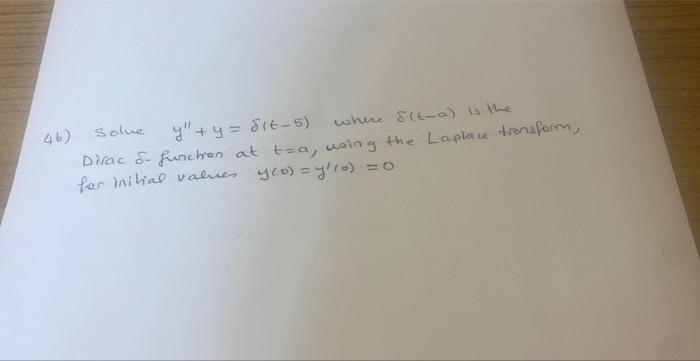 4b) Solve y'' + y = δ(t-5) where δ(t-a) is the
Dirac δ- function at t=a, using the Laplace transform,
for initial values y(0) = y'(0) = 0